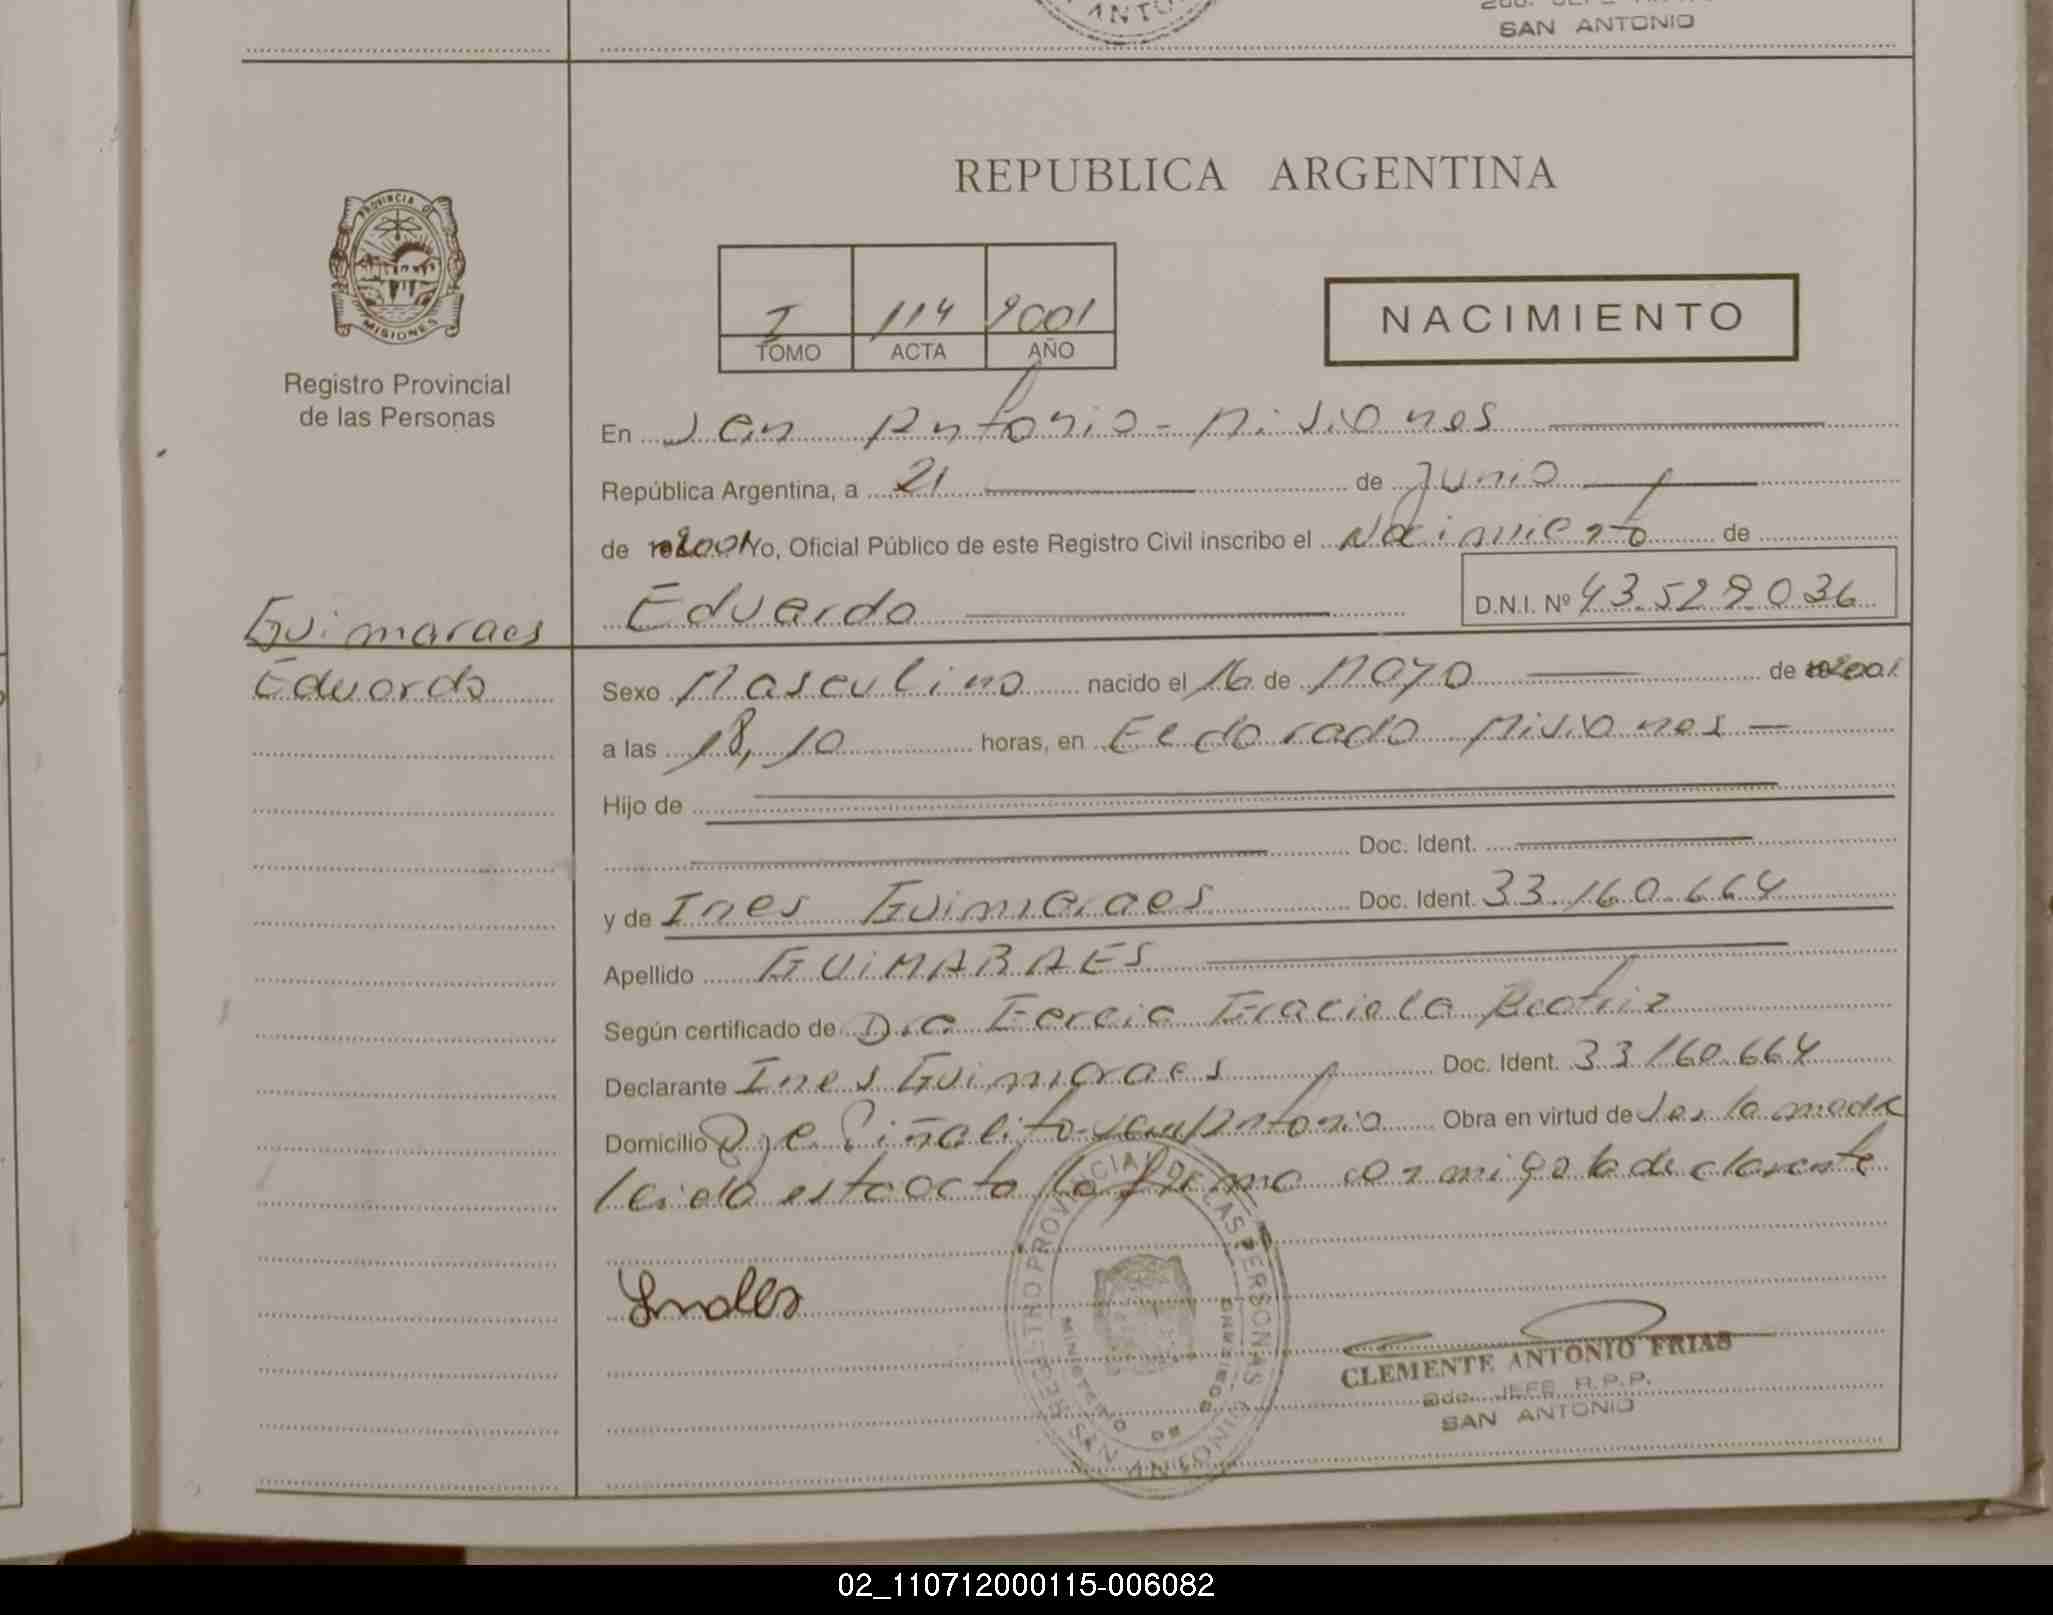 ANTO
SAN ANTONIO
REPUBLICA ARGENTINA
PROVINCIA DE
MISIONES
Registro Provincial
de las Personas
I 114 2001
TOMO ACTA AÑO
NACIMIENTO
En San Antonio - Misiones
República Argentina, a 21 de Junio
de 2001 Yo, Oficial Público de este Registro Civil inscribo el Nacimiento de
Eduardo D.N.I. Nº 43.529.036
Guimaraes
Eduardo
Sexo Masculino nacido el 16 de Mayo de 2001
a las 18,10 horas, en Eldorado Misiones
Hijo de
Doc. Ident.
y de Ines Guimaraes Doc. Ident. 33.160.664
Apellido GUIMARAES
Según certificado de Dra Graciela Beatriz
Declarante Ines Guimaraes Doc. Ident. 33160.664
Domicilio Piñalito-San Antonio Obra en virtud de Ser la madre
Leida esta acta la firma con migo la declarante
REGISTRO PROVINCIAL DE LAS PERSONAS
MINISTERIO DE GOBIERNO
SAN ANTONIO
CLEMENTE ANTONIO FRIAS
2do. JEFE R.P.P.
SAN ANTONIO
02_110712000115-006082